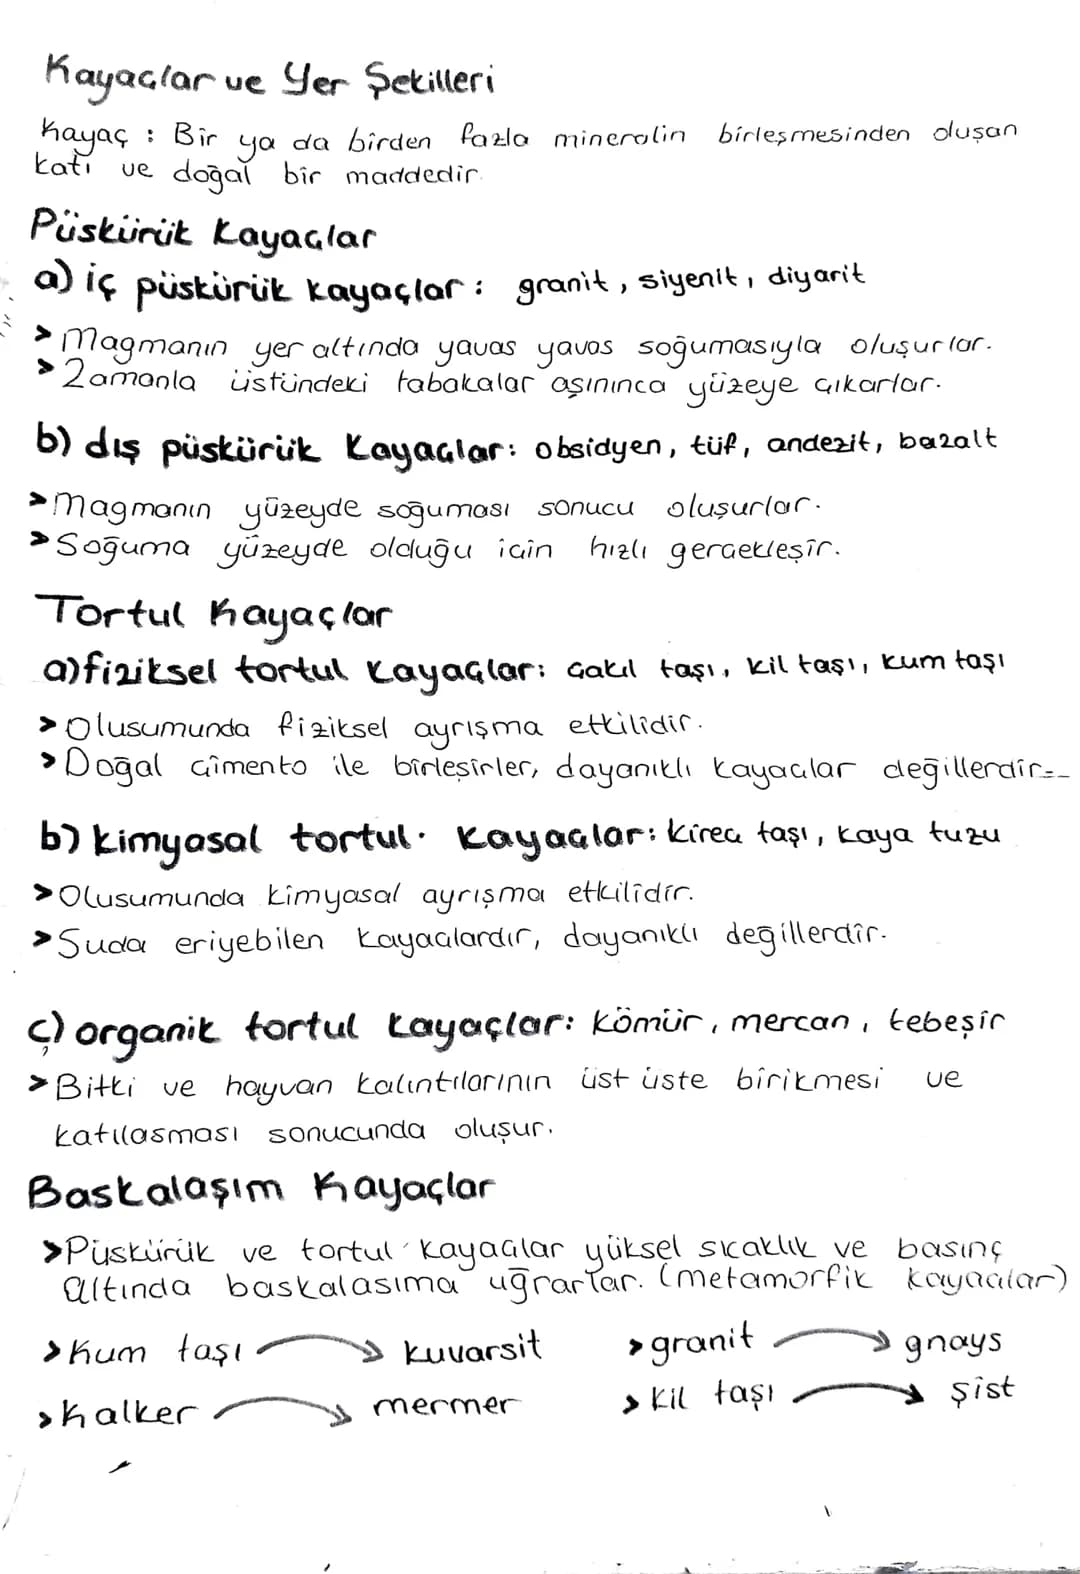 Kayaçlar ve Yer Şekilleri
Kayaç : Bir ya da birden fazla mineralin birleşmesinden oluşan
katı ve doğal bir maddedir.
Püskürük Kayaçlar
a) iç püskürük kayaçlar : granit, siyenit, diyarit
> Magmanın yer altında yavas yavas soğumasıyla oluşurlar.
> Zamanla üstündeki tabakalar aşınınca yüzeye çıkarlar.
b) dış püskürük Kayaçlar: obsidyen, tüf, andezit, bazalt
> Magmanın yüzeyde soğuması sonucu oluşurlar.
> Soğuma yüzeyde olduğu için hızlı gerçekleşir.
Tortul Kayaçlar
a) fiziksel tortul kayaçlar: çakıl taşı, kil taşı, kum taşı
> Olusumunda fiziksel ayrışma etkilidir.
> Doğal çimento ile birleşirler, dayanıklı kayaçlar değillerdir.
b) kimyasal tortul kayaçlar: kireç taşı, kaya tuzu
> Olusumunda kimyasal ayrışma etkilidir.
> Suda eriyebilen kayaçlardır, dayanıklı değillerdir.
ç) organik tortul kayaçlar: kömür, mercan, tebeşir
> Bitki ve hayvan kalıntılarının üst üste birikmesi ve
katılasması sonucunda oluşur.
Baskalaşım Kayaçlar
> Püskürük ve tortul kayaçlar yüksel sıcaklık ve basınç
altında baskalasıma uğrarlar. (metamorfik kayaçlar)
> Kum taşı → kuvarsit > granit → gnays
> Kalker → mermer > kil taşı → şist